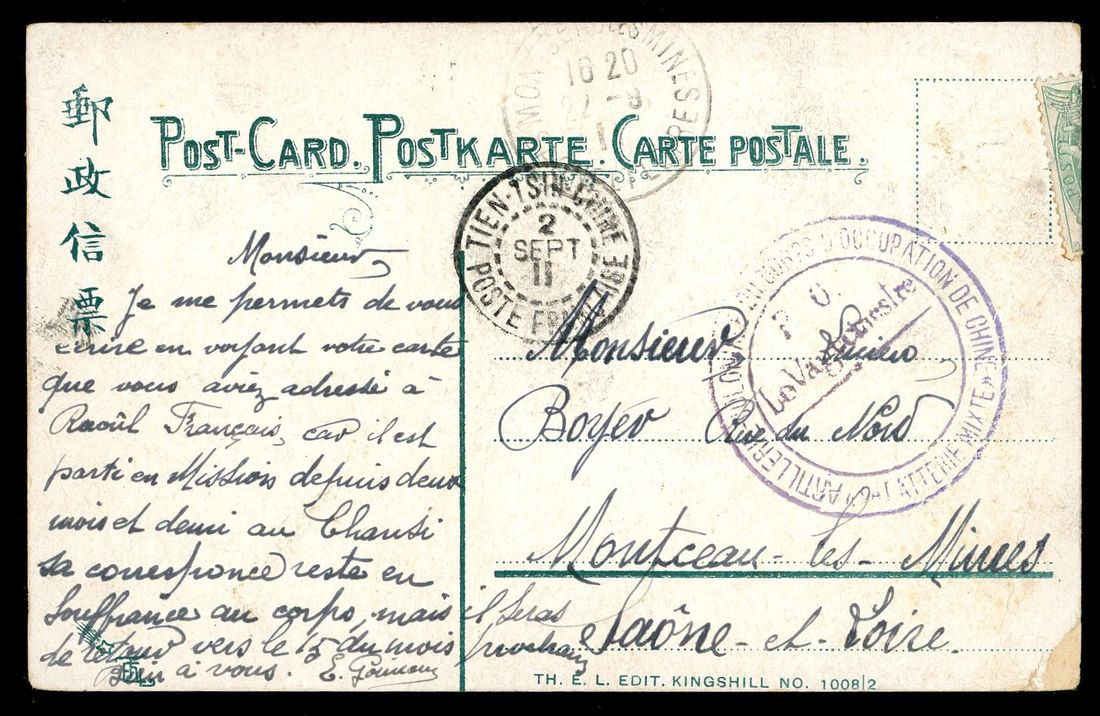 郵政信票
POST-CARD. POSTKARTE. CARTE POSTALE.
MINES
16 20
TIEN-TSIN CHINE
2
SEPT
11
POSTE FRANÇAISE
D'OCCUPATION DE CHINE
BATTERIE MIXTE
ARTILLERIE
Le Vaguemestre
POST
Monsieur
Je me permets de vous
écrire en voyant votre carte
que vous aviez adressé à
Raoûl Français, car il est
parti en Mission depuis deux
mois et demi au Chansi
sa corresponce reste en
souffrance au corps, mais il seras
de retour vers le 15 du mois prochain
Bien à vous. E.
Monsieur Lucien
Boyer Rue du Nord
Montceau-les-Mines
Saône-et-Loire.
TH. E. L. EDIT. KINGSHILL NO. 1008/2